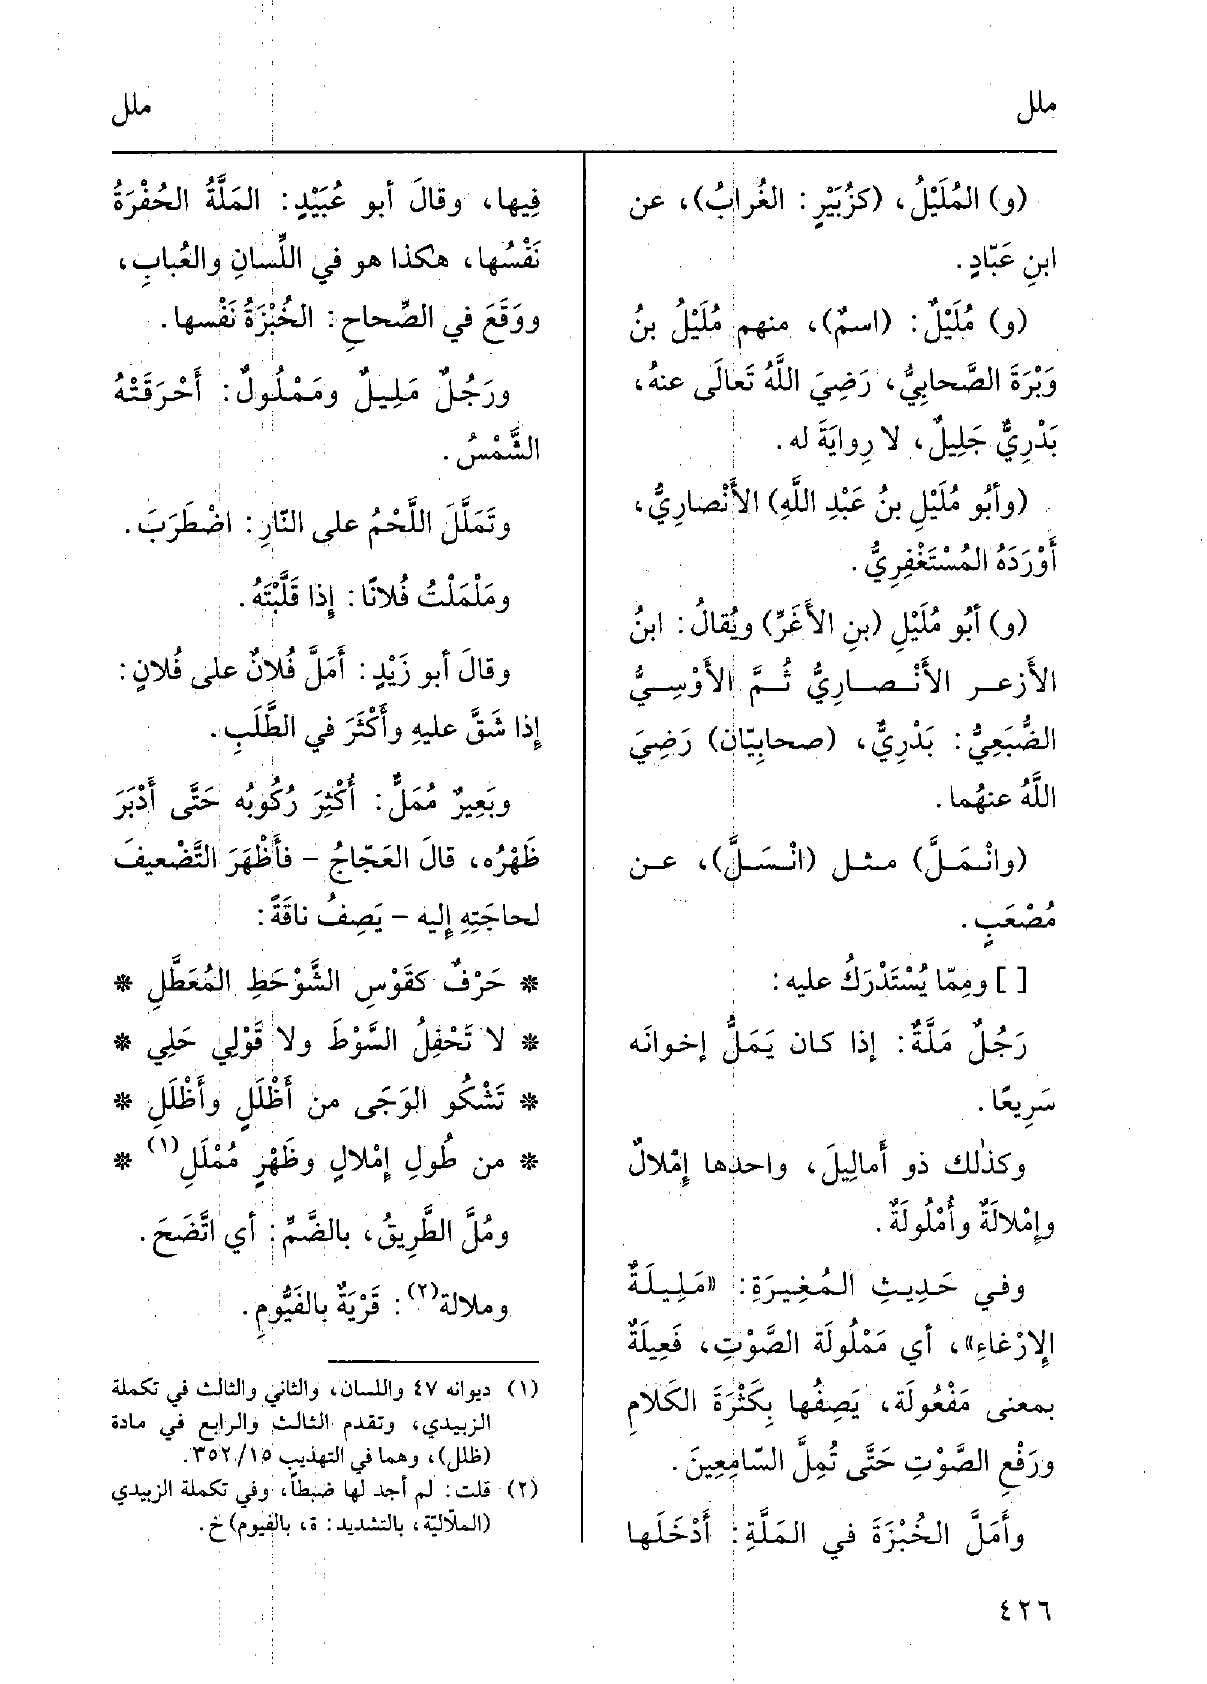 ملل
ملل
(و) المُلَيْلُ، (كزُبَيْرٍ: الغُرابُ)، عن
ابنِ عَبّادٍ.
(و) مُلَيْلٌ: (اسمٌ)، منهم مُلَيْلُ بنُ
وَبْرَةَ الصَّحابِيُّ، رَضِيَ اللَّهُ تَعالَى عنهُ،
بَدْرِيٌّ جَلِيلٌ، لا رِوايَةَ له.
(وأبُو مُلَيْلِ بنُ عَبْدِ اللَّهِ) الأَنْصارِيُّ،
أَوْرَدَهُ المُسْتَغْفِرِيُّ.
(و) أبُو مُلَيْلِ (بنِ الأَغَرِّ) ويُقالُ: ابنُ
الأَزعـر الأَنْـصـارِيُّ ثُـمَّ الأَوْسِـيُّ
الضُّبَعِيُّ: بَدْرِيٌّ، (صحابِيّان) رَضِيَ
اللَّهُ عنهُما.
(وانْـمَـلَّ) مثـل (انْسَـلَّ)، عـن
مُصْعَبٍ.
[ ] ومِمّا يُسْتَدْرَكُ عليه:
رَجُلٌ مَلَّةٌ: إذا كان يَمَلُّ إخوانَه
سَرِيعًا.
وكذٰلك ذو أَمالِيلَ، واحدها إمْلالٌ
وإمْلالَةٌ وأُمْلُولَةٌ.
وفي حَدِيثِ المُغِيرَةِ: «مَلِيلَةٌ
الإرْغاءِ»، أي مَمْلُولَة الصَّوْتِ، فَعِيلَةٌ
بمعنى مَفْعُولَة، يَصِفُها بِكَثْرَةَ الكَلامِ
ورَفْعِ الصَّوْتِ حَتَّى تُمِلَّ السّامِعِينَ.
وأَمَلَّ الخُبْزَةَ في المَلَّةِ: أَدْخَلَها
فِيها، وقالَ أبو عُبَيْدٍ: المَلَّةُ الحُفْرَةُ
نَفْسُها، هكذا هو في اللِّسانِ والعُبابِ،
ووَقَعَ في الصِّحاحِ: الخُبْزَةُ نَفْسها.
ورَجُلٌ مَلِيلٌ ومَمْلُولٌ: أَحْرَقَتْهُ
الشَّمْسُ.
وتَمَلَّلَ اللَّحْمُ على النّارِ: اضْطَرَبَ.
ومَلْمَلْتُ فُلانًا: إذا قَلَّبْتَهُ.
وقالَ أبو زَيْدٍ: أَمَلَّ فُلانٌ على فُلانٍ:
إذا شَقَّ عليهِ وأَكْثَرَ في الطَّلَبِ.
وبَعِيرٌ مُمَلٌّ: أُكْثِرَ رُكُوبُه حَتَّى أَدْبَرَ
ظَهْرُه، قالَ العَجّاجُ – فأَظْهَرَ التَّضْعيفَ
لحاجَتِهِ إليه – يَصِفُ ناقَةً:
* حَرْفٌ كقَوْسِ الشَّوْحَطِ المُعَطَّلِ *
* لا تَحْفِلُ السَّوْطَ ولا قَوْلِي حَلِي *
* تَشْكُو الوَجَى من أَظْلَلٍ وأَظْلَلِ *
* من طُولِ إمْلالٍ وظَهْرٍ مُمْلَلِ(١) *
ومُلَّ الطَّرِيقُ، بالضَّمِّ: أي اتَّضَحَ.
وملالة(٢): قَرْيَةٌ بالفَيُّومِ.
(١) ديوانه ٤٧ واللسان، والثاني والثالث في تكملة
الزبيدي، وتقدم الثالث والرابع في مادة
(ظلل)، وهما في التهذيب ٣٥٢/١٥.
(٢) قلت: لم أجد لها ضبطاً، وفي تكملة الزبيدي
(الملّاليّة، بالتشديد: ة، بالفيوم) خ.
٤٢٦